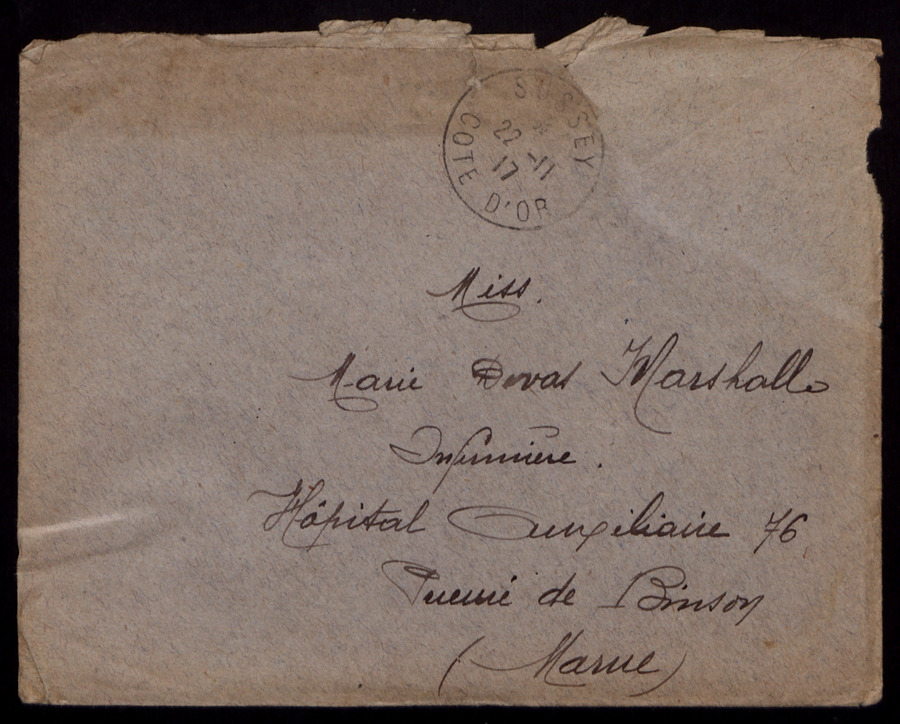 SUSSEY
22 - 11
17
COTE D'OR
Miss.
Marie Dovas Marshall
Infirmière.
Hôpital Auxiliaire 76
de Binson
(Marne)